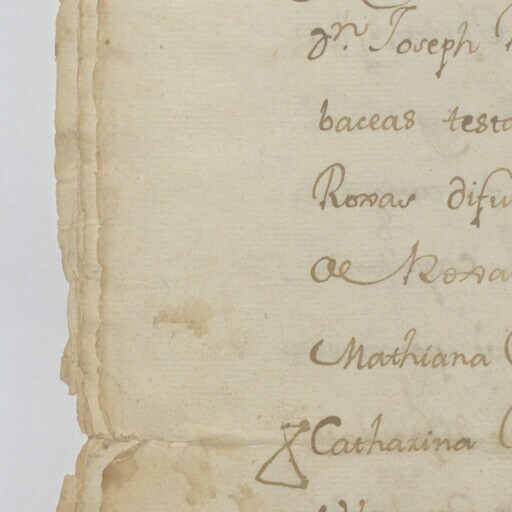 Dn. Joseph
baceas testa
Roxas difu
de Roxas
Mathiana
Catharina